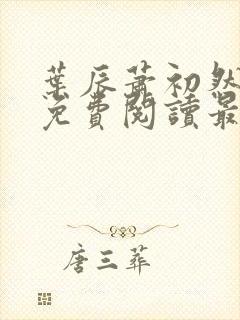 葉辰蕭初然
免費閱讀最
唐三葬